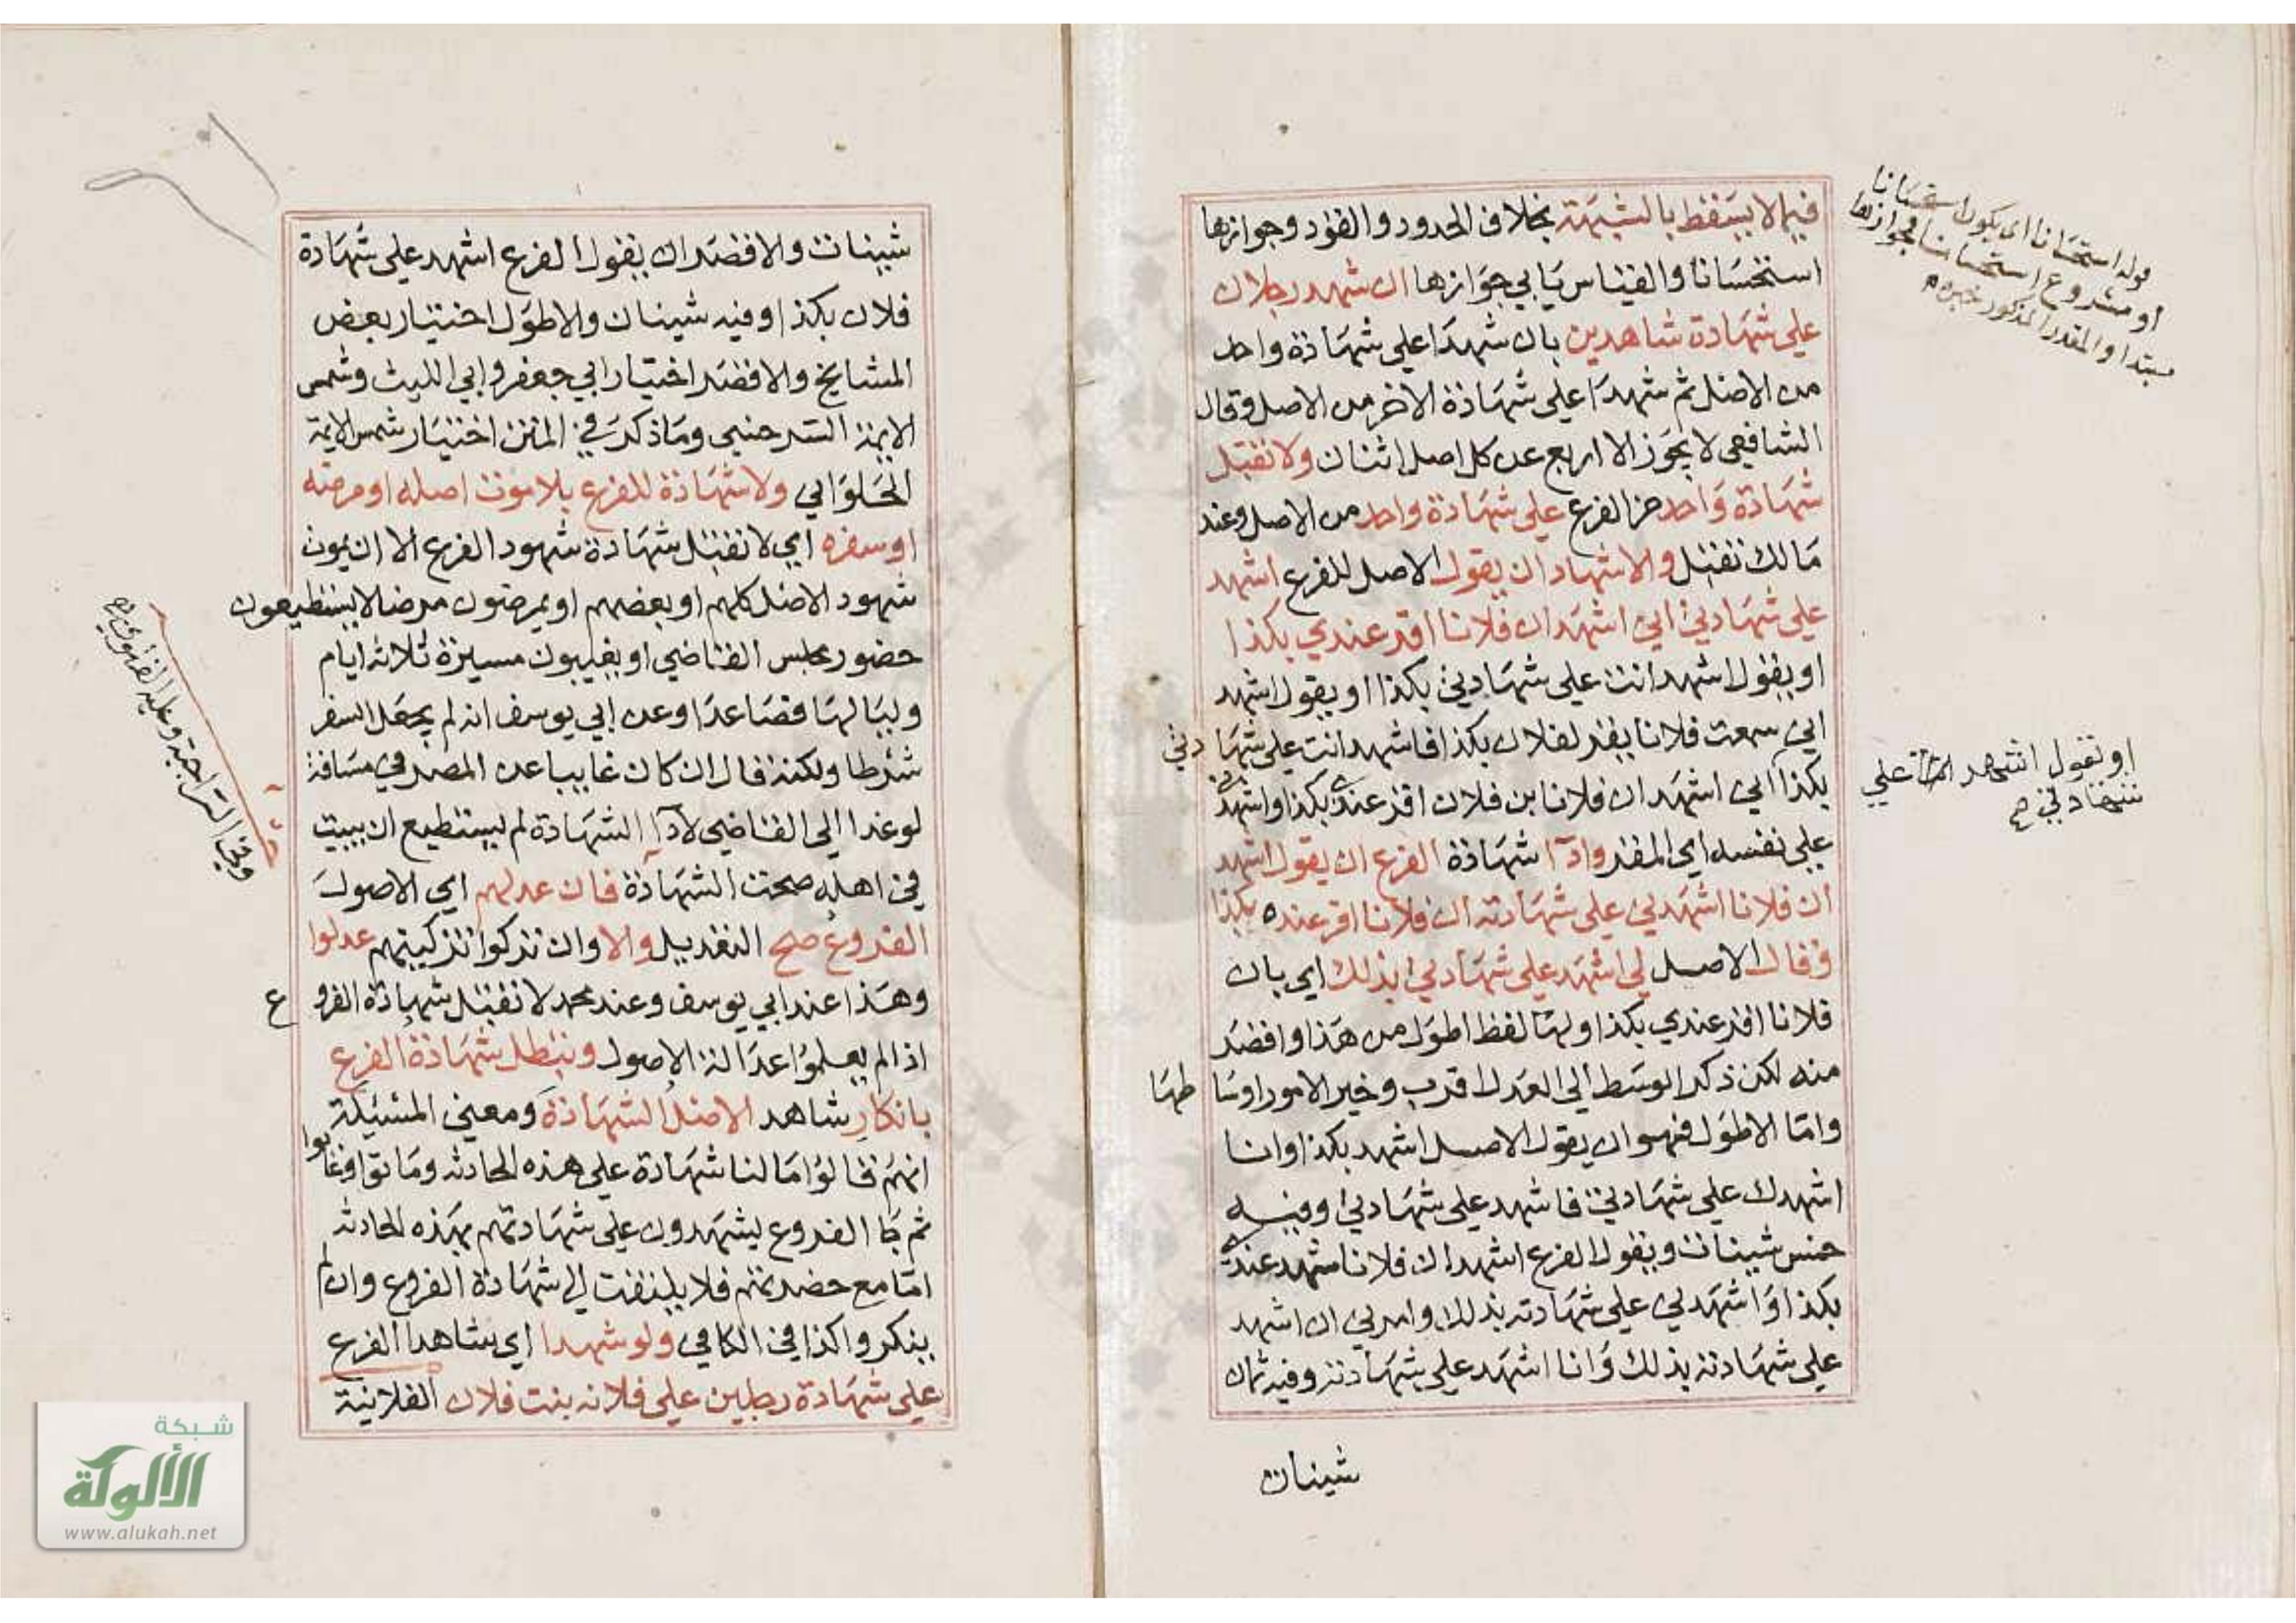 فيما لا يسقط بالشبهة بخلاف الحدود والقود وجوازها
استحسانا والقياس يابي جوازها ان شهد رجلان
علي شهادة شاهدين بان شهدا علي شهادة واحد
من الاصل ثم شهدا علي شهادة الاخر من الاصل وقال
الشافعي لا يجوز الا اربع عن كل اصل اثنان ولا تقبل
شهادة واحد من الفرع علي شهادة واحد من الاصل وعند
مالك تقبل والاشهاد ان يقول الاصل للفرع اشهد
علي شهادتي اني اشهد ان فلانا اقر عندي بكذا
او يقول اشهد انت علي شهادتي بكذا او يقول اشهد
اني سمعت فلانا يقر لفلان بكذا فاشهد انت علي شهادتي
بكذا اني اشهد ان فلانا بن فلان اقر عندي بكذا واشهدني
علي نفسه اي المقر وادآ شهادة الفرع ان يقول اشهد
ان فلانا اشهدني علي شهادته ان فلانا اقر عنده بكذا
وقال الاصل لي اشهد علي شهادتي بذلك اي بان
فلانا اقر عندي بكذا ولها لفظ اطول من هذا واقصر
منه لكن ذكر الوسط الي العدل اقرب وخير الامور اوساطها
واما الاطول فهو ان يقول الاصل اشهد بكذا وانا
اشهدك علي شهادتي فاشهد علي شهادتي وفيه
خمس شينات ويقول الفرع اشهد ان فلانا شهد عندي
بكذا واشهدني علي شهادته بذلك وامرني ان اشهد
علي شهادته بذلك وانا اشهد علي شهادته وفيه ثمان
شينات
قوله استحسانا اي يكون استحسانا
او مشروع استحسانا فجوازها
مبتدا والمقدر المذكور خبره م
او تقول اشهد انت علي
شهادتي ح
شينات والاقصر ان يقول الفرع اشهد علي شهادة
فلان بكذا وفيه شينان والاطول اختيار بعض
المشايخ والاقصر اختيار ابي جعفر وابي الليث وشمس
الايمة السرخسي وما ذكر في المتن اختيار شمس الايمة
الحلوابي ولا شهادة للفرع بلا موت اصله او مرضه
او سفره اي لا تقبل شهادة شهود الفرع الا ان يموت
شهود الاصل كلهم او بعضهم او يمرضون مرضا لا يستطيعون
حضور مجلس القاضي او يغيبون مسيرة ثلاثه ايام
ولياليها فصاعدا وعن ابي يوسف انه لم يجعل السفر
شرطا ولكنه قال ان كان غايبا عن المصر في مسافة
لو غدا الي القاضي لادآ الشهادة لم يستطيع ان يبيت
في اهله صحت الشهادة فان عدلهم اي الاصول
الفروع صح التعديل والا وان تركوا تزكيتهم عدلوا
وهذا عند ابي يوسف وعند محمد لا تقبل شهادة الفروع
اذا لم يعلموا عدالة الاصول وتبطل شهادة الفرع
بانكار شاهد الاصل الشهادة ومعني المسئيلة
انهم قالوا مالنا شهادة علي هذه الحادثه وماتوا وغابوا
ثم جا الفروع يشهدون علي شهادتهم بهذه الحادثه
اما مع حضرتهم فلا يلتفت الي شهادة الفروع وان لم
ينكروا كذا في الكافي ولو شهدا اي شاهدا الفرع
علي شهادة رجلين علي فلانه بنت فلان الفلانية
وفي السراجية وعليه الفتوي
شبكة
الألوكة
www.alukah.net